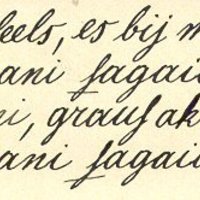 eels, es bij m
ani ſagai
i, grauſ ak
ani ſagai